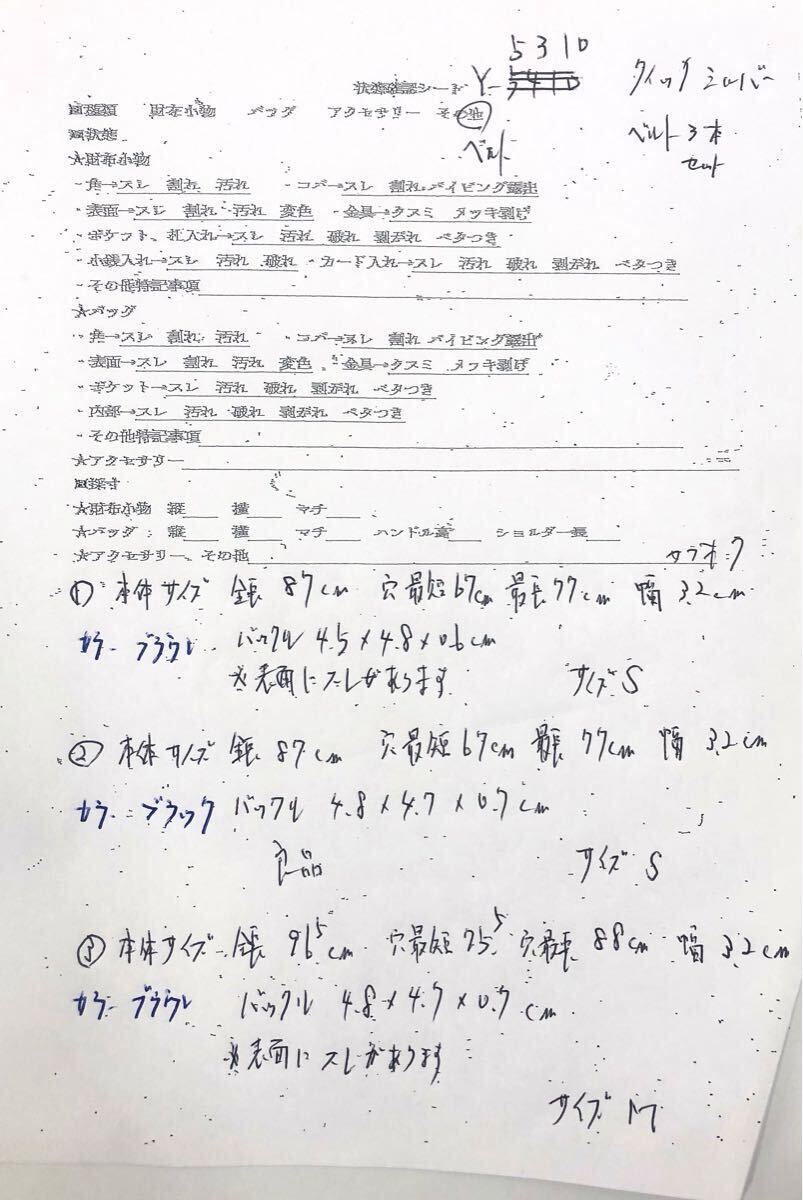 5310
状態確認シート Y- クイックシルバー
■種類 財布小物 バッグ アクセサリー その他
ベルト ベルト3本
セット
■状態
★財布小物
・角→スレ 割れ 汚れ ・コバ→スレ 割れ パイピング露出
・表面→スレ 割れ 汚れ 変色 ・金具→クスミ メッキ剥げ
・ポケット、札入れ→スレ 汚れ 破れ 剥がれ ベタつき
・小銭入れ→スレ 汚れ 破れ ・カード入れ→スレ 汚れ 破れ 剥がれ ベタつき
・その他特記事項
★バッグ
・角→スレ 割れ 汚れ ・コバ→スレ 割れ パイピング露出
・表面→スレ 割れ 汚れ 変色 ・金具→クスミ メッキ剥げ
・ポケット→スレ 汚れ 破れ 剥がれ ベタつき
・内部→スレ 汚れ 破れ 剥がれ ベタつき
・その他特記事項
★アクセサリー
■採寸
★財布小物 縦 横 マチ
★バッグ 縦 横 マチ ハンドル高 ショルダー長
★アクセサリー、その他
① 本体サイズ 全長 87cm 穴最短67cm 最長77cm 幅 3.2cm
カラー ブラウン バックル 4.5×4.8×0.6cm
※表面にスレがあります サイズS
② 本体サイズ 全長 87cm 穴最短67cm 最長 77cm 幅 3.2cm
カラー ブラック バックル 4.8×4.7×0.7cm
良品 サイズ S
③ 本体サイズ 全長 96.5cm 穴最短75.5 穴最長 88cm 幅 3.2cm
カラー ブラウン バックル 4.8×4.7×0.7cm
※表面にスレがあります
サイズ M